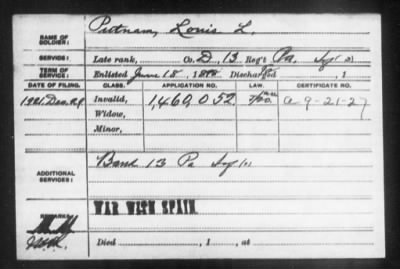 NAME OF SOLDIER: Putnam, Louis L.
SERVICE: Late rank, Co. D, 13 Reg't Pa. Inf
TERM OF SERVICE: Enlisted June 18, 1898 Discharged , 1
DATE OF FILING. CLASS. APPLICATION NO. LAW. CERTIFICATE NO.
1921. Dec. Invalid, 1,460,052
Widow,
Minor,
ADDITIONAL SERVICES: Band 13 Pa Inf
WAR WITH SPAIN
REMARKS:
Died , 1 , at